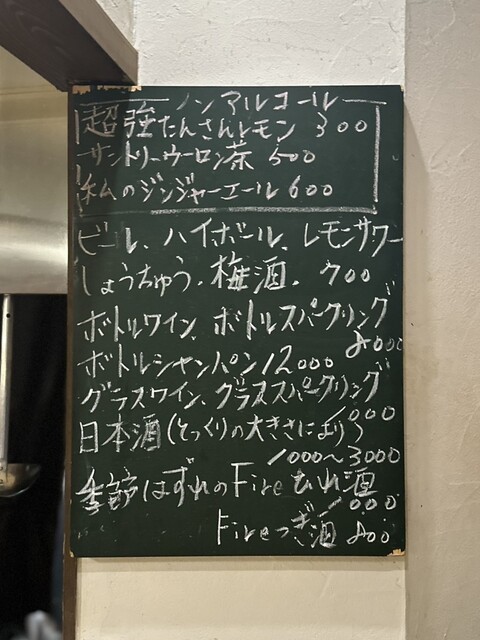 ノンアルコール
超強たんさんレモン 300
サントリーウーロン茶 500
私のジンジャーエール 600
ビール、ハイボール、レモンサワー
しょうちゅう、梅酒、700
ボトルワイン、ボトルスパークリング
8000
ボトルシャンパン12000
グラスワイン、グラススパークリング
1000
日本酒(とっくりの大きさにより)
1000〜3000
季節はずれのFireひれ酒
1000
Fireつぎ酒 800